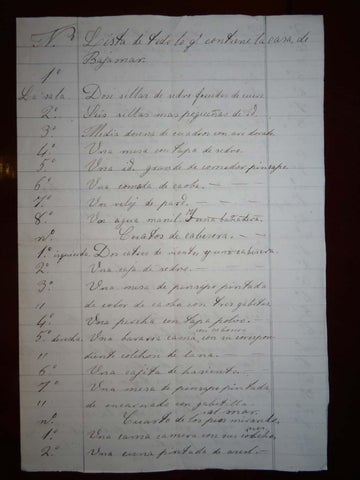 N.º Lista de todo lo q.e contiene la casa de
Bajamar.
1º
La sala Dos sillas de cedro forradas de cuero
2º Seis sillas mas pequeñas de id.
3º Media docena de cuadros con aro dorado
4º Una mesa con tapa de cedro.
5º Una id. grande de comedor pinsapo
6º Una comoda de caoba.
7º Un reloj de pared.
8º Un agua manil y una batidera.
nº Cuartos de cabecera.
1º izquierda Dos catres de viento, y una cabecera
2º Una caja de cedro.
3º Una mesa de pinsapo pintada
" de color de caoba con tres gabetas
4º Una percha con tapa polvo.
5º derecha Una camera con su correspon
" diente colchon de lana.
6º Una cajita de
7º Una mesa de pinsapo pintada
" de encarnado con gabetilla
al mar.
nº Cuarto de los pies mirando
1º Una cama camera con sus
2º Una cuna pintada de azul.